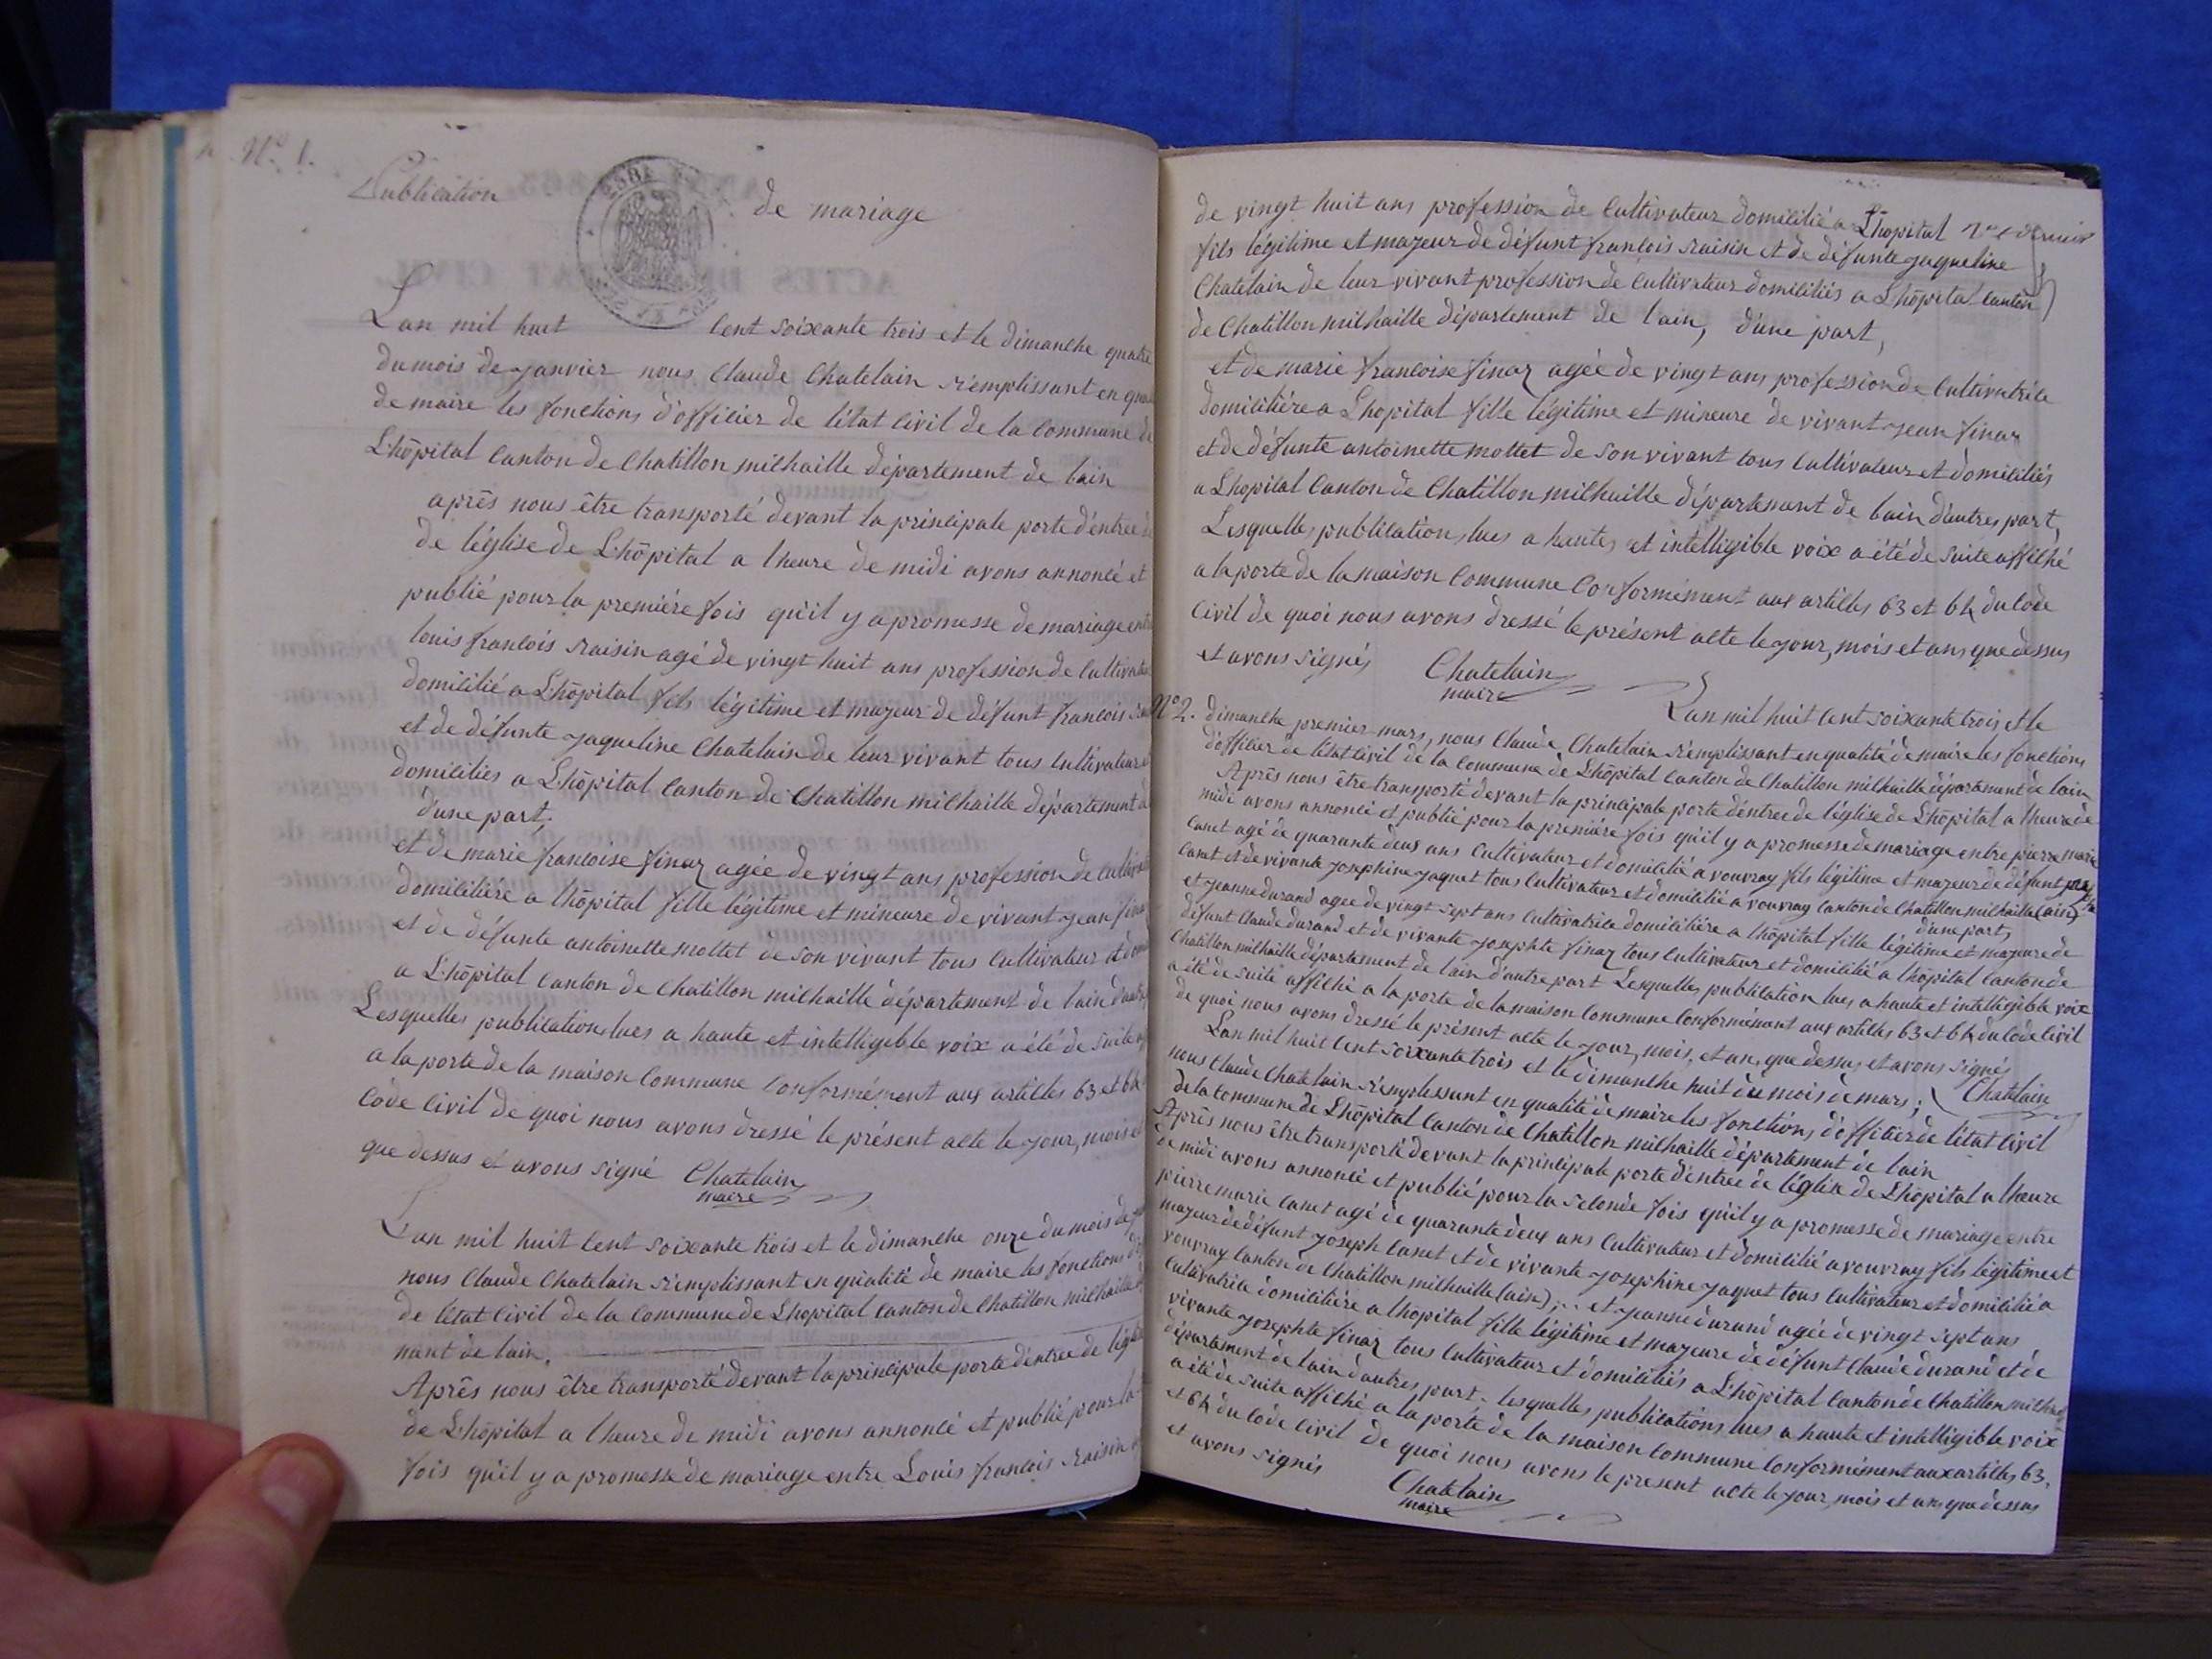 Nº. 1.
Publication de mariage
Lan mil huit Cent soixante trois et le dimanche quatre
du mois de janvier nous Claude Chatelain remplissant en
de maire les fonctions d'offilier de l'état Civil de la Commune de
L'hôpital Canton de Chatillon milhaille département de lain
après nous être transporté devant la principale porte d'entrée de
de l'église de L'hôpital a lheure de midi avons annoncé et
publié pour la première fois qu'il y a promesse de mariage entre
louis francois raisin agé de vingt huit ans profession de Cultivateur
domicilié a L'hôpital fils légitime et majeur de défunt francois
et de défunte jaqueline Chatelain de leur vivant tous Cultivateur
domiciliés a L'hôpital Canton de Chatillon milhaille département de
d'une part;
et de marie francoise finaz agée de vingt ans profession de
domicilière a lhôpital fille légitime et mineure de vivant jean finaz
et de défunte antoinette mottet de son vivant tous Cultivateur et
a L'hôpital Canton de Chatillon milhaille département de lain
Lesquelles publication lues a haute et intelligible voix a été de suite
a la porte de la maison Commune Conformément aux articles 63 et 64
Code Civil de quoi nous avons dressé le présent acte le jour, mois et
que dessus et avons signé Chatelain
maire
Lan mil huit Cent soixante trois et le dimanche onze du mois de
nous Claude Chatelain remplissant en qualité de maire les fonctions
de létat Civil de la Commune de Lhopital Canton de Chatillon milhaille
mant de lain.
Après nous être transporté devant la principale porte d'entrée de
de L'hôpital a lheure de midi avons annoncé et publié pour la
fois qu'il y a promesse de mariage entre Louis francois raisin
de vingt huit ans profession de Cultivateur domicilié a Lhopital
fils légitime et majeur de défunt francois raisin et de défunte jaqueline
Chatelain de leur vivant profession de Cultivateur domiciliés a L'hôpital Canton
de Chatillon milhaille département de l'ain, d'une part,
et de marie francoise finaz agée de vingt ans profession de Cultivatrice
domicilière a Lhopital fille légitime et mineure de vivant jean finaz
et de défunte antoinette mottet de son vivant tous Cultivateur et domiciliés
a Lhopital Canton de Chatillon milhaille département de lain d'autres part,
Lesquelles publication lues a hautes et intelligible voix a été de suite affiché
a la porte de la maison Commune Conformément aux articles 63 et 64 du Code
Civil de quoi nous avons dressé le présent acte le jour, mois et ans que dessus
et avons signés Chatelain
maire
Nº2. Lan mil huit Cent soixante trois et le
dimanche premier mars, nous Claude Chatelain remplissant en qualité de maire les fonctions
d'offilier de l'état Civil de la Commune de L'hôpital Canton de Chatillon milhaille département de lain
Après nous être transporté devant la principale porte d'entrée de l'église de L'hôpital a lheure de
midi avons annoncé et publié pour la première fois qu'il y a promesse de mariage entre pierre marie
Canet agé de quarante deux ans Cultivateur et domicilié a vouvray fils légitime et majeur de défunt
Canet et de vivante josephine jaquet tous Cultivateur et domicilié a vouvray Canton de Chatillon milhaille (ain)
d'une part,
et jeanne durand agée de vingt sept ans Cultivatrice domicilière a lhôpital fille légitime et majeure de
défunt Claude durand et de vivante josephte finaz tous Cultivateur et domicilié a lhôpital Canton de
Chatillon milhaille département de lain d'autre part Lesquelles publication lues a haute et intelligible voix
a été de suite affiché a la porte de la maison Commune Conformément aux articles 63 et 64 du Code Civil
de quoi nous avons dressé le présent acte le jour, mois, et an, que dessus et avons signés
Chatelain
Lan mil huit Cent soixante trois et le dimanche huit du mois de mars;
nous Claude Chatelain remplissant en qualité de maire les fonctions d'offitier de l'état Civil
de la Commune de L'hôpital Canton de Chatillon milhaille département de lain
Après nous être transporté devant la principale porte d'entrée de léglise de L'hôpital a lheure
de midi avons annoncé et publié pour la seconde fois qu'il y a promesse de mariage entre
pierre marie Canet agé de quarante deux ans Cultivateur et domicilié a vouvray fils légitime et
majeur de défunt joseph Canet et de vivante josephine jaquet tous Cultivateur et domicilié a
vouvray Canton de Chatillon milhaille (ain); .. et jeanne durand agée de vingt sept ans
Cultivatrice domicilière a lhopital fille légitime et majeure de défunt Claude durand et de
vivante josephte finaz tous Cultivateur et domiciliés a L'hôpital Canton de Chatillon
département de lain d'autres part, lesquelles publications lues a haute et intelligible voix
a été de suite affiché a la porte de la maison Commune Conformément aux articles 63.
et 64 du Code Civil de quoi nous avons le present acte le jour, mois et an que dessus
et avons signés
Chatelain
maire